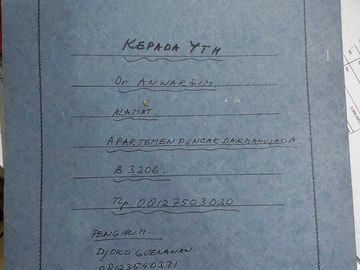 KEPADA YTH
Dr ANWAR
ALAMAT
APARTEMEN PUNCAK DARMAHUSADA
B 3206.
Tlp. 08127503030
PENGIRIM
DJOKO GUENAWAN
08123590321